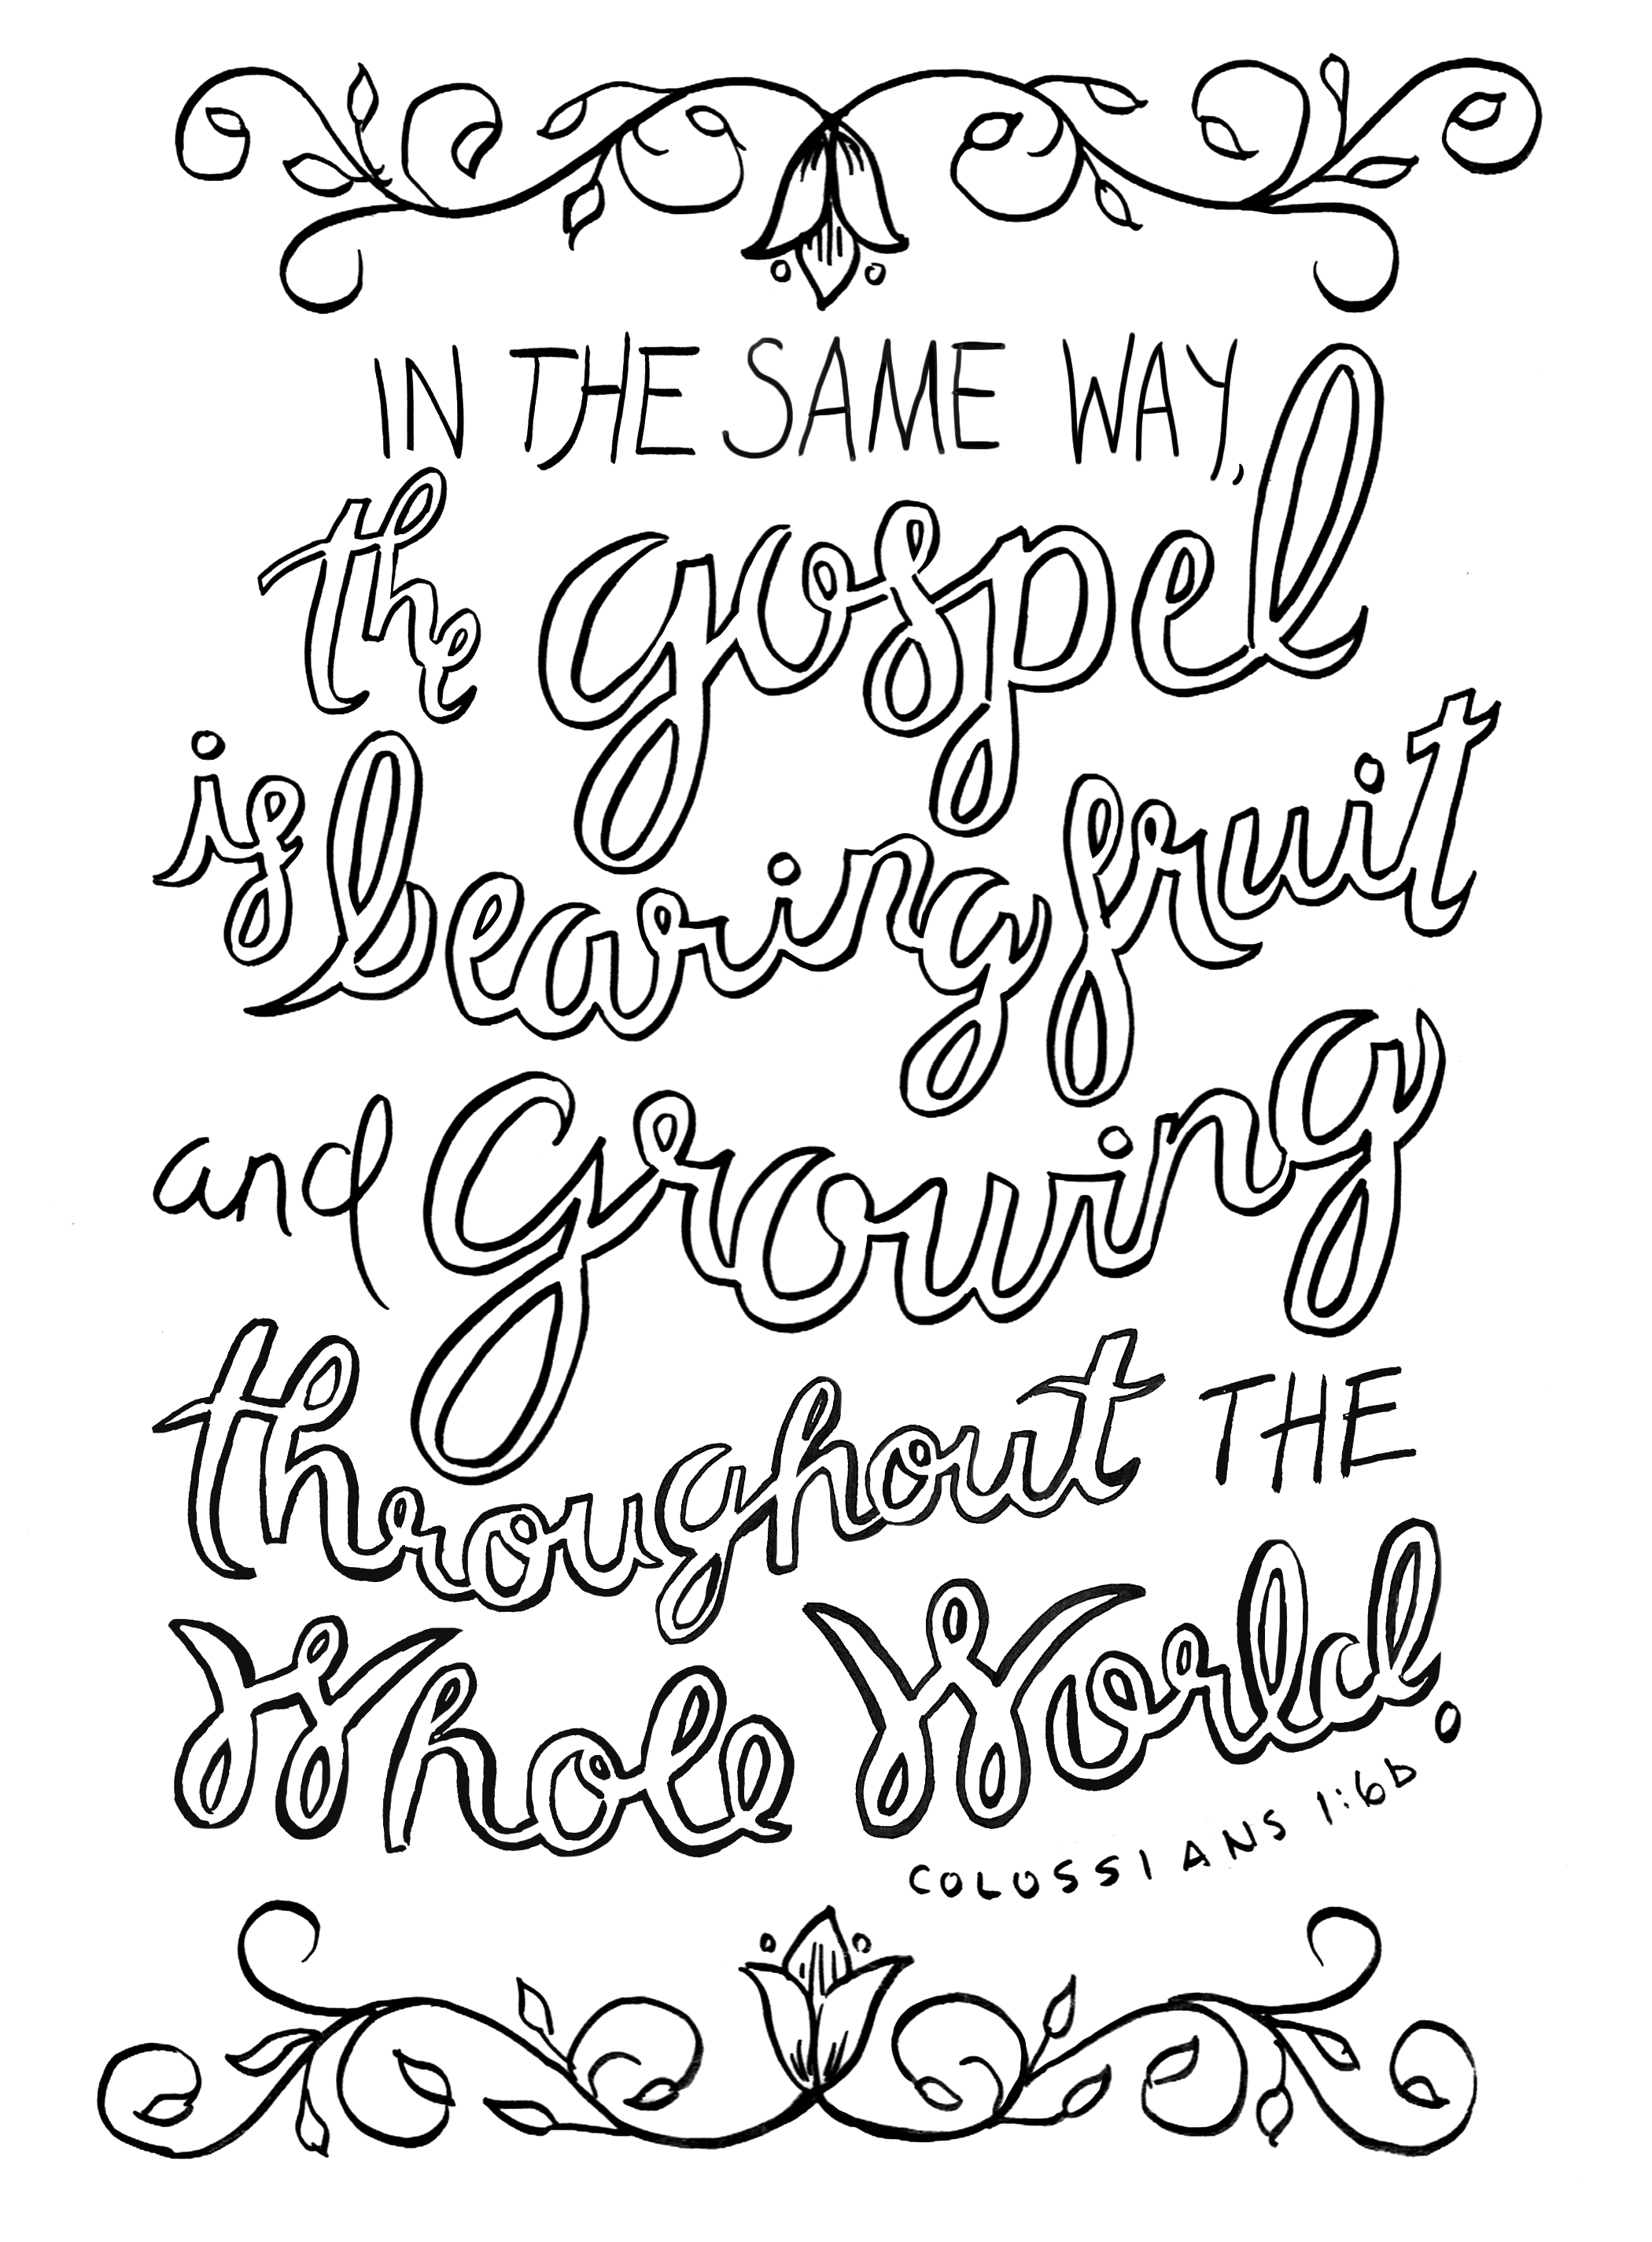 IN THE SAME WAY,
the gospel
is bearing fruit
and Growing
throughout THE
Whole World.
COLOSSIANS 1:6b